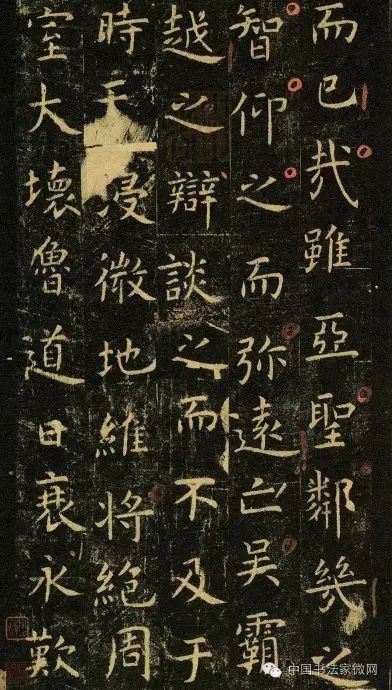 而已哉雖亞聖鄰幾之
智仰之而弥遠亡吴霸
越之辯談之而不及于
時天浸微地維將絶周
室大壞魯道日衰永歎
中国书法家微网